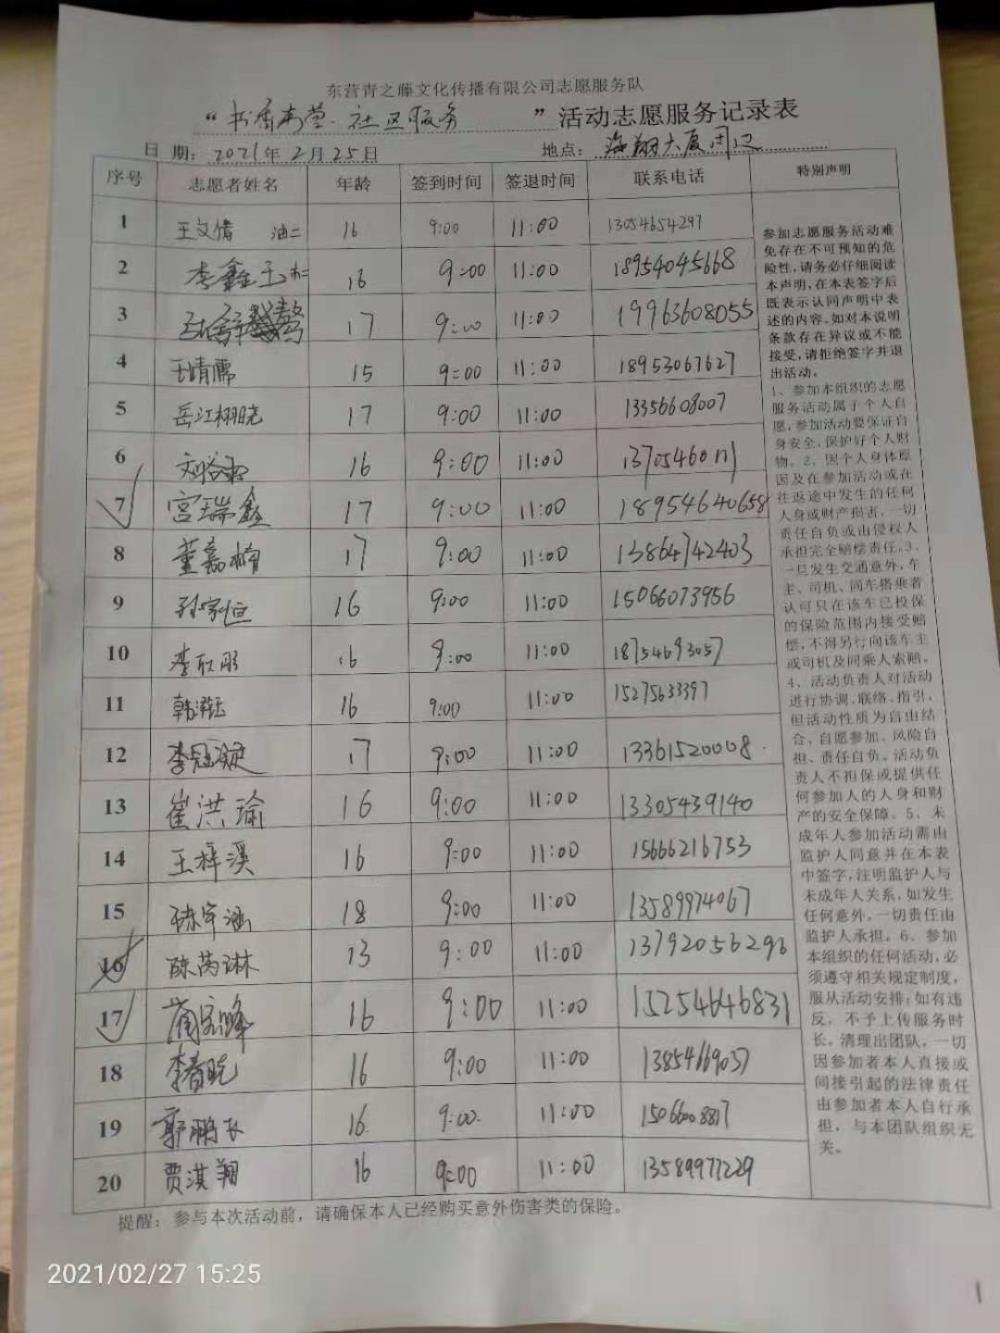 东营青之藤文化传播有限公司志愿服务队
“书香东营·社区服务”活动志愿服务记录表
日 期：2021年2月25日 地点：海翔大厦周边
序号 志愿者姓名 年龄 签到时间 签退时间 联系电话 特别声明
1 王文倩 油二 16 9:00 11:00 13054654297
2 李鑫玉 16 9:00 11:00 18954045668
3 17 9:00 11:00 19963608055
4 王晴儒 15 9:00 11:00 18953067627
5 岳江栩晓 17 9:00 11:00 13356608007
6 16 9:00 11:00
7 宫瑞鑫 17 9:00 11:00 18954640658
8 董嘉楠 17 9:00 11:00 13864742403
9 孙家恒 16 9:00 11:00 15066073956
10 李欣彤 16 9:00 11:00 18754693057
11 16 9:00 11:00 15275633397
12 17 9:00 11:00 13361520008
13 崔洪瑜 16 9:00 11:00 13305439140
14 王梓溪 16 9:00 11:00 15666216753
15 陈宇涵 18 9:00 11:00 13589974067
16 陈芮琳 13 9:00 11:00 13792056296
17 16 9:00 11:00 15254646831
18 李春晓 16 9:00 11:00 13854669037
19 郭鹏飞 16 9:00 11:00
20 贾淇翔 16 9:00 11:00 13589977229
参加志愿服务活动难
免存在不可预知的危
险性，请务必仔细阅读
本声明，在本表签字后
既表示认同声明中表
述的内容。如对本说明
条款存在异议或不能
接受，请拒绝签字并退
出活动。
1、参加本组织的志愿
服务活动属于个人自
愿，参加活动要保证自
身安全，保护好个人财
物。2、因个人身体原
因及在参加活动或在
往返途中发生的任何
人身或财产损害，一切
责任自负或由侵权人
承担完全赔偿责任。3、
一旦发生交通意外，车
主、司机、同车搭乘者
认可只在该车已投保
的保险范围内接受赔
偿，不得另行向该车主
或司机及同乘人索赔。
4、活动负责人对活动
进行协调、联络、指引，
但活动性质为自由结
合、自愿参加、风险自
担、责任自负。活动负
责人不担保或提供任
何参加人的人身和财
产的安全保障。5、未
成年人参加活动需由
监护人同意并在本表
中签字，注明监护人与
未成年人关系，如发生
任何意外，一切责任由
监护人承担。6、参加
本组织的任何活动，必
须遵守相关规定制度，
服从活动安排；如有违
反，不予上传服务时
长，清理出团队，一切
因参加者本人直接或
间接引起的法律责任
由参加者本人自行承
担，与本团队组织无
关。
提醒：参与本次活动前，请确保本人已经购买意外伤害类的保险。
2021/02/27 15:25